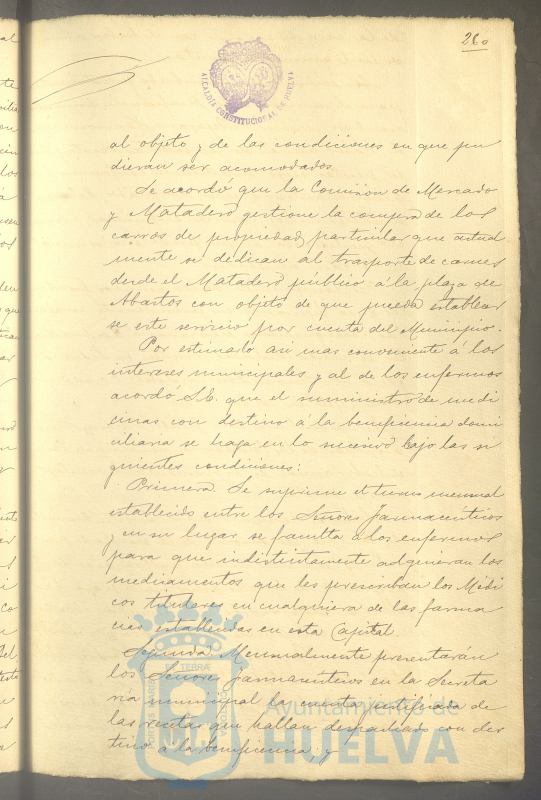 28º
ALCALDÍA CONSTITUCIONAL DE HUELVA
al objeto y de las condiciones en que pu
dieran ser acomodados.
Se acordó que la Comisión de Mercado
y Matadero gestione la compra de los
carros de propiedad particular que actual
mente se dedican al trasporte de carnes
desde el Matadero público á la plaza de
Abastos con objeto de que pueda establecer
se este servicio por cuenta del Municipio.
Por estimarlo asi mas conveniente á los
intereses municipales y al de los enfermos
acordó S.E. que el suministro de medi
cinas con destino á la beneficencia domi
ciliaria se haga en lo sucesivo bajo las si
guientes condiciones:
Primera. Se suprime el turno mensual
establecido entre los Señores Farmaceuticos
y en su lugar se faculta á los enfermos
para que indistintamente adquieran los
medicamentos que les prescriban los Médi
cos titulares en cualquiera de las farma
cias establecidas en esta Capital.
Segunda. Mensualmente presentarán
los Señores Farmaceuticos en la Secreta
ría municipal la cuenta justificada de
las recetas que hallan despachado con des
tino á la beneficencia; y
Ayuntamiento de
HUELVA